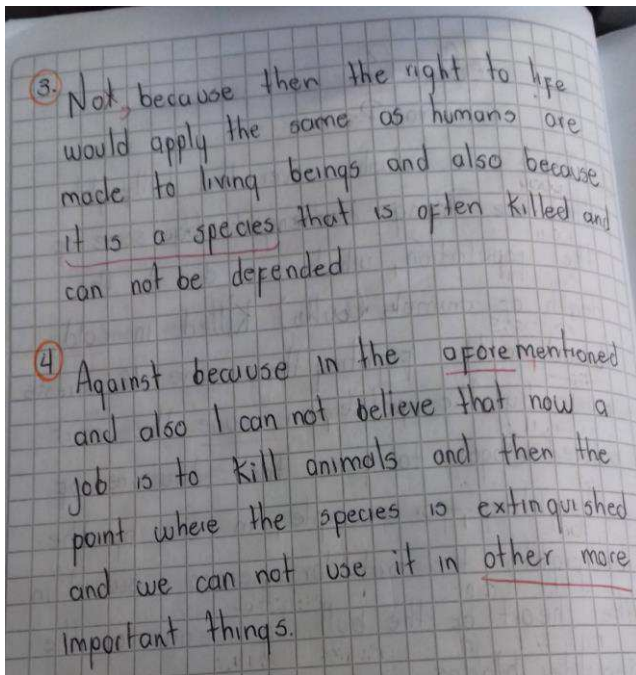 3. Not, because then the right to life
would apply the same as humans are
made to living beings and also because
it is a species that is often killed and
can not be defended
4 Against because in the aforementioned
and also I can not believe that now a
job is to kill animals and then the
point where the species is extinguished
and we can not use it in other more
important things.